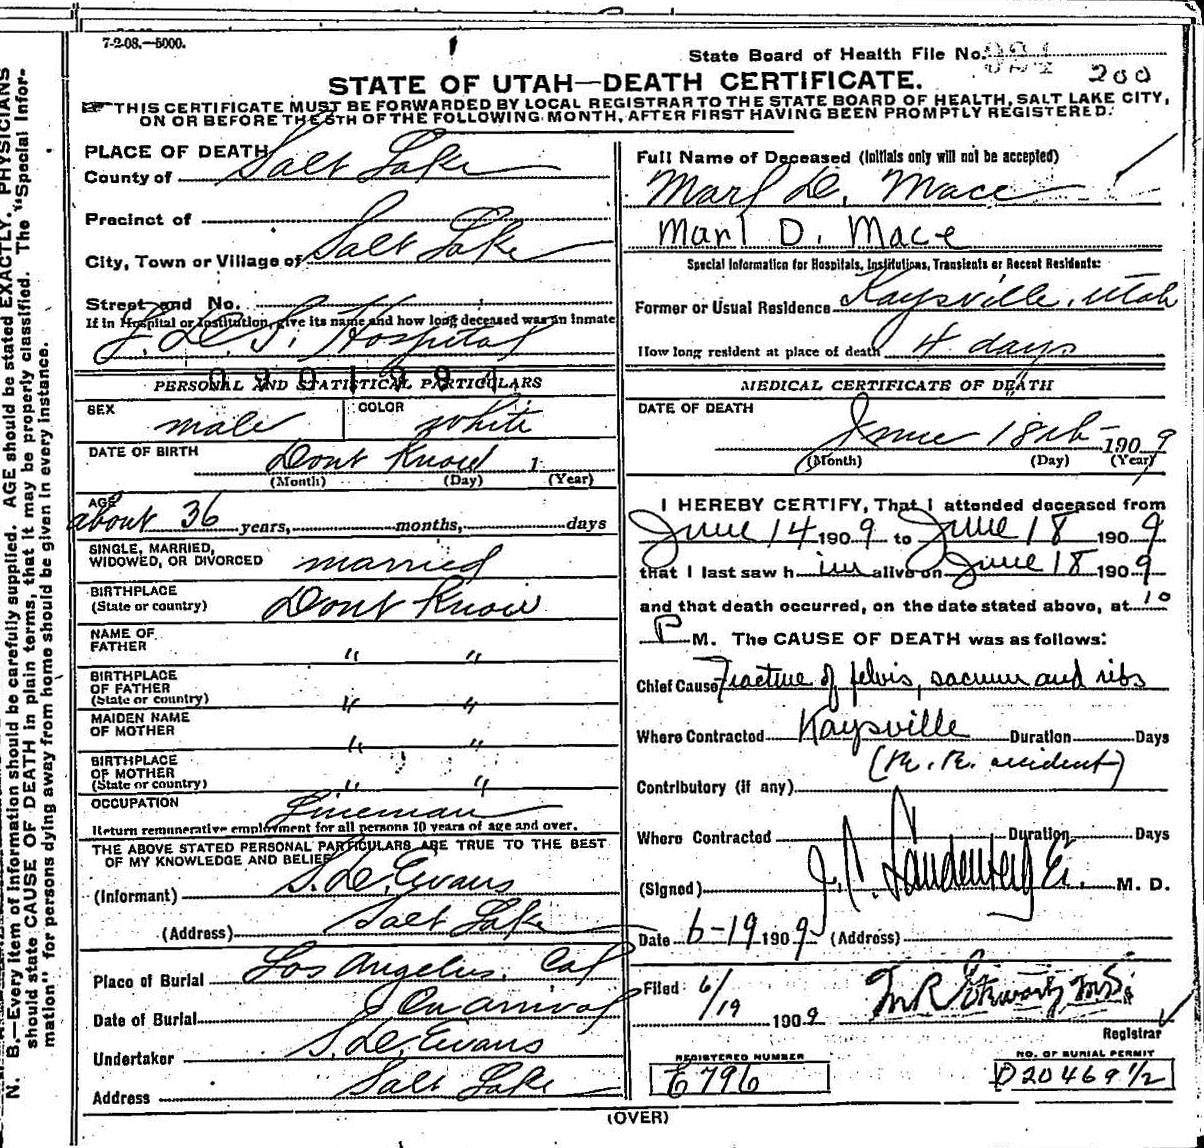 7-2-08.—5000.
State Board of Health File No.
200
STATE OF UTAH—DEATH CERTIFICATE.
THIS CERTIFICATE MUST BE FORWARDED BY LOCAL REGISTRAR TO THE STATE BOARD OF HEALTH, SALT LAKE CITY,
ON OR BEFORE THE 5TH OF THE FOLLOWING MONTH, AFTER FIRST HAVING BEEN PROMPTLY REGISTERED.
N. B.—Every item of information should be carefully supplied. AGE should be stated EXACTLY. PHYSICIANS
should state CAUSE OF DEATH in plain terms, that it may be properly classified. The "Special Infor-
mation" for persons dying away from home should be given in every instance.
PLACE OF DEATH
County of Salt Lake
Precinct of
City, Town or Village of Salt Lake
Street and No.
If in Hospital or Institution, give its name and how long deceased was an inmate
L.D.S. Hospital
PERSONAL AND STATISTICAL PARTICULARS
SEX male COLOR white
DATE OF BIRTH Dont Know 1
(Month) (Day) (Year)
AGE about 36 years, months, days
SINGLE, MARRIED,
WIDOWED, OR DIVORCED married
BIRTHPLACE
(State or country) Dont Know
NAME OF
FATHER " "
BIRTHPLACE
OF FATHER
(State or country) " "
MAIDEN NAME
OF MOTHER " "
BIRTHPLACE
OF MOTHER
(State or country) " "
OCCUPATION Lineman
Return remunerative employment for all persons 10 years of age and over.
THE ABOVE STATED PERSONAL PARTICULARS ARE TRUE TO THE BEST
OF MY KNOWLEDGE AND BELIEF
(Informant) S. D. Evans
(Address) Salt Lake
Place of Burial Los Angelus, Cal
Date of Burial On arrival
Undertaker S. D. Evans
Address Salt Lake
Full Name of Deceased (Initials only will not be accepted)
Marl D. Mace
Marl D. Mace
Special Information for Hospitals, Institutions, Transients or Recent Residents:
Former or Usual Residence Kaysville, Utah
How long resident at place of death 4 days
MEDICAL CERTIFICATE OF DEATH
DATE OF DEATH
June 18th 1909
(Month) (Day) (Year)
I HEREBY CERTIFY, That I attended deceased from
June 14 1909 to June 18 1909
that I last saw him alive on June 18 1909
and that death occurred, on the date stated above, at 10
P M. The CAUSE OF DEATH was as follows:
Chief Cause Fracture of pelvis, sacrum and ribs
Where Contracted Kaysville Duration Days
(R. R. accident)
Contributory (if any)
Where Contracted Duration Days
(Signed) J. C. Landenberger M. D.
Date 6-19 1909 (Address)
Filed 6/19 1909 M R Stewart M.D.
Registrar
REGISTERED NUMBER
E 796
NO. OF BURIAL PERMIT
D 20469 1/2
(OVER)